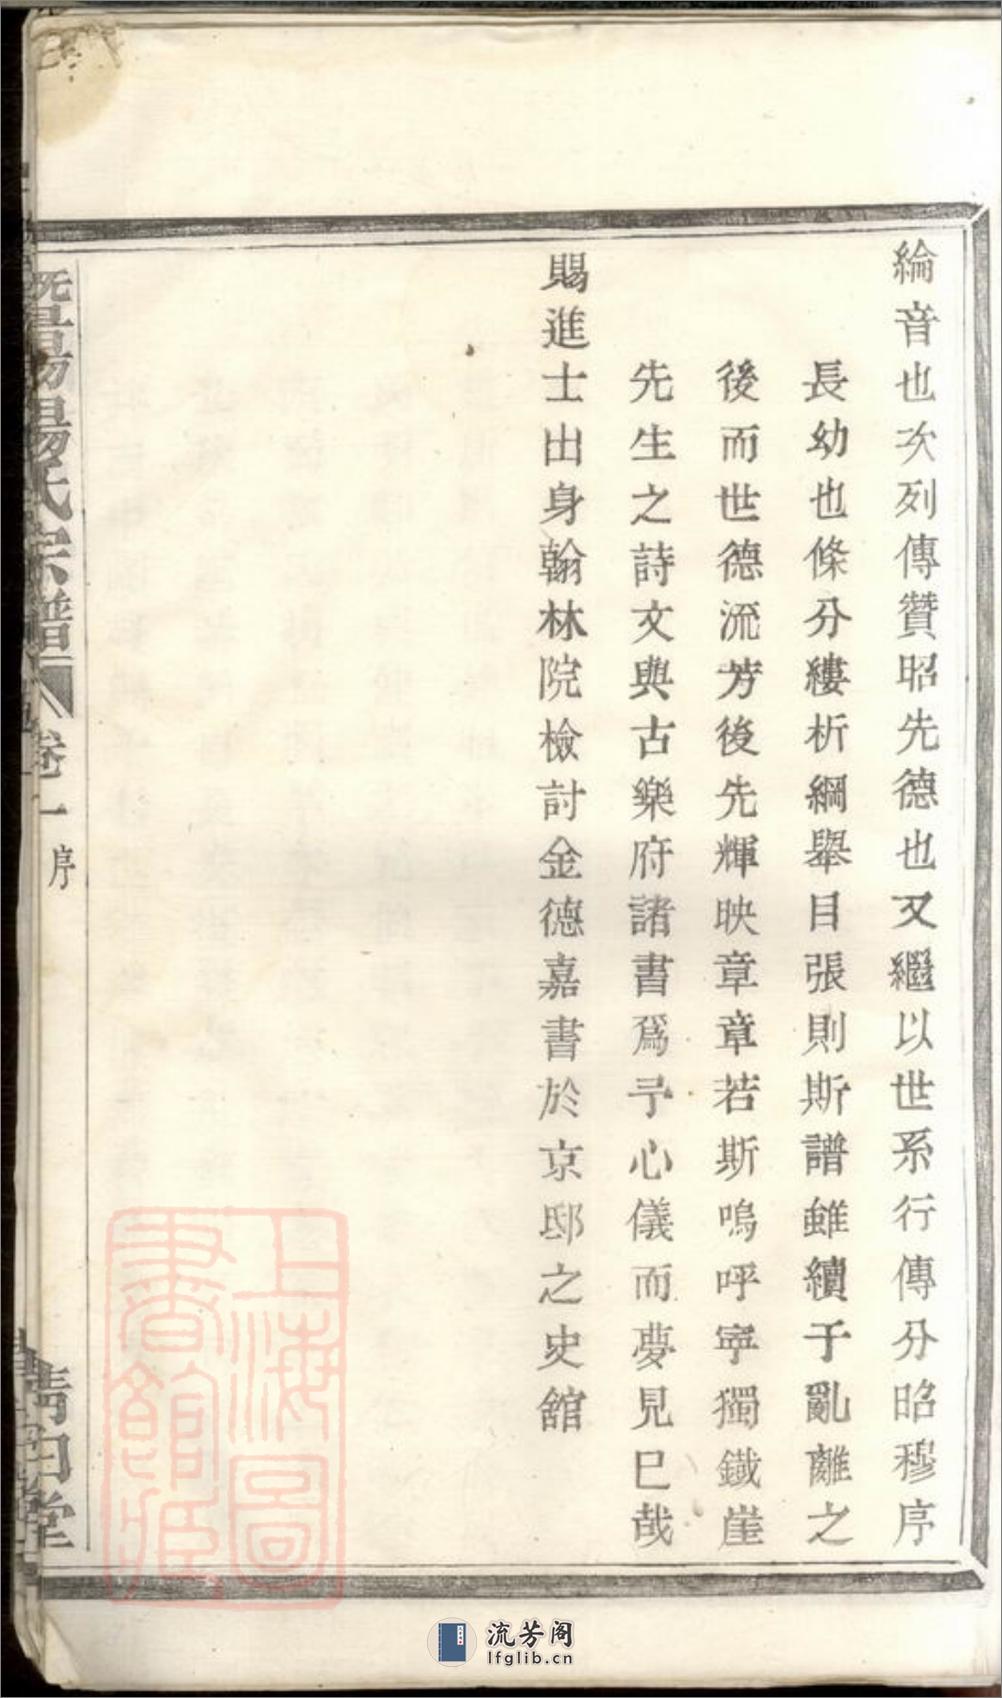 綸音也次列傳贊昭先德也又繼以世系行傳分昭穆序
長幼也條分縷析綱舉目張則斯譜雖續于亂離之
後而世德流芳後先輝映章章若斯嗚呼寧獨鐵崖
先生之詩文與古樂府諸書爲予心儀而夢見巳哉
賜進士出身翰林院檢討金德嘉書於京邸之史館
暨陽楊氏宗譜
卷一
序
清白堂
上海圖書館藏
流芳阁
lfglib.cn